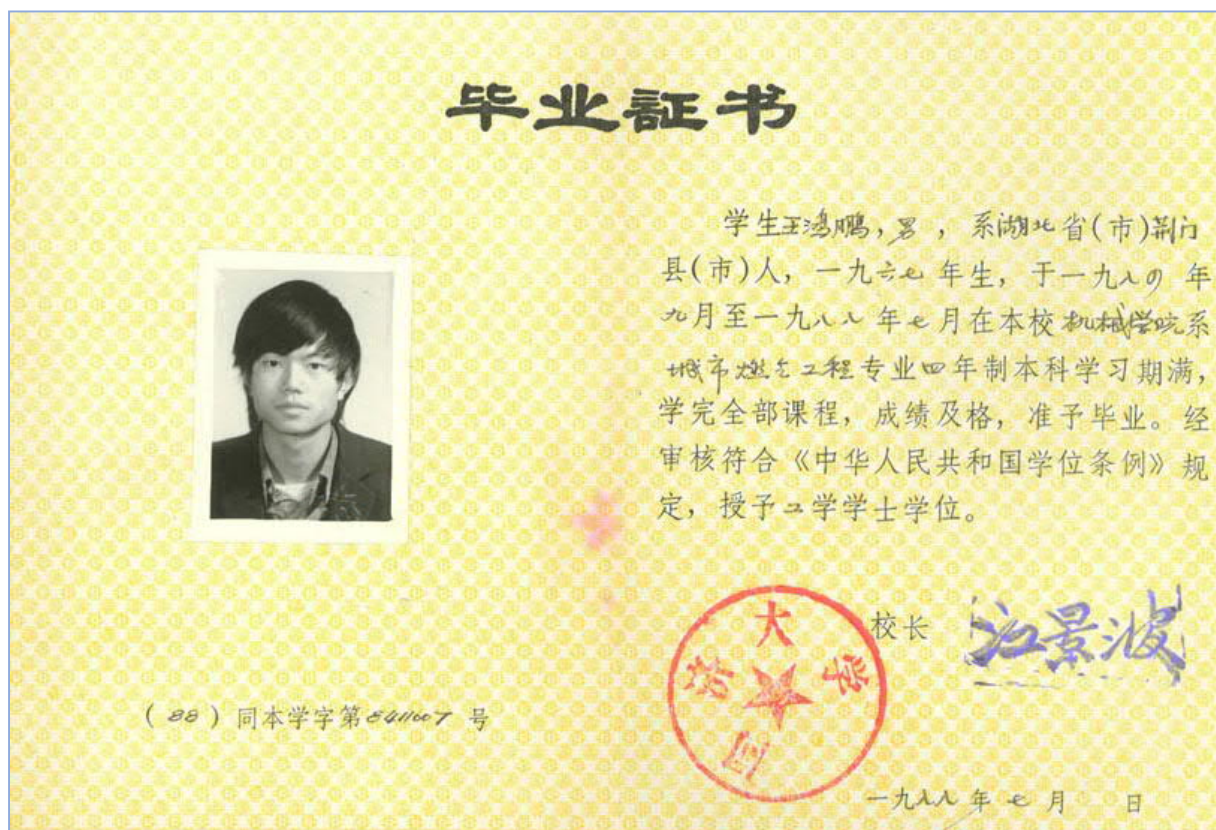 毕业証书
学生王鸿鹏，男，系湖北省(市)荆门
县(市)人，一九六七年生，于一九八四年
九月至一九八八年七月在本校机械学院系
城市燃气工程专业四年制本科学习期满，
学完全部课程，成绩及格，准予毕业。经
审核符合《中华人民共和国学位条例》规
定，授予工学学士学位。
同济大学
校长 江景波
(88)同本学字第841007号
一九八八年七月 日